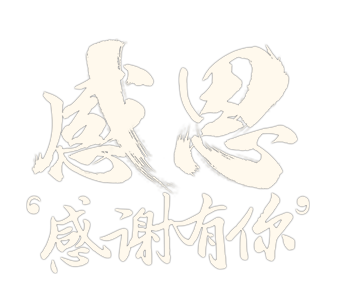 感恩
‘感谢有你’